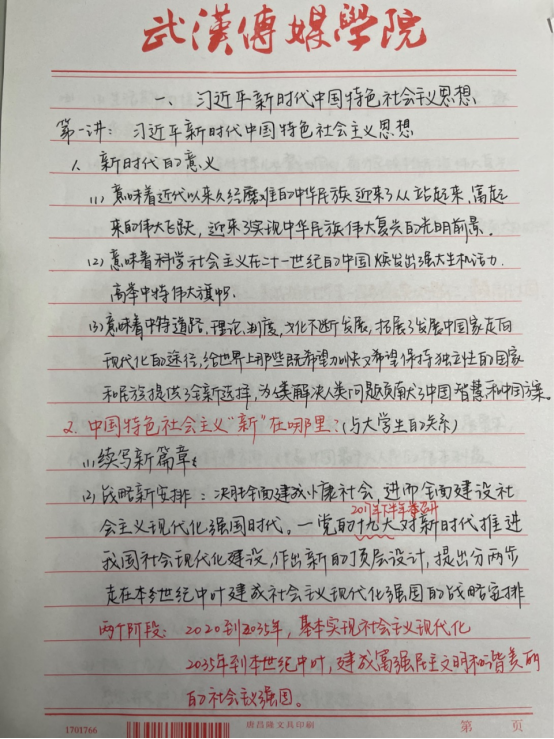 武漢傳媒學院
一、习近平新时代中国特色社会主义思想、
第一讲：习近平新时代中国特色社会主义思想
1、新时代的意义
(1) 意味着近代以来久经磨难的中华民族迎来了从站起来、富起
来的伟大飞跃，迎来了实现中华民族伟大复兴的光明前景。
(2) 意味着科学社会主义在二十一世纪的中国焕发出强大生机活力.
高举中特伟大旗帜.
(3) 意味着中特道路、理论、制度、文化不断发展，拓展了发展中国家走向
现代化的途径，给世界上那些既希望加快又希望保持独立性的国家
和民族提供了全新选择，为人类解决人类问题贡献了中国智慧和中国方案。
2. 中国特色社会主义“新”在哪里？(与大学生的关系)
(1) 续写新篇章；
(2) 战略新安排：决胜全面建成小康社会，进而全面建设社
2017年下半年召开
会主义现代化强国时代。一党的十九大对新时代推进
我国社会现代化建设，作出新的顶层设计，提出分两步
走在本世纪中叶建成社会主义现代化强国的战略安排
两个阶段：2020到2035年，基本实现社会主义现代化
2035年到本世纪中叶，建成富强民主文明和谐美丽
的社会主义强国。
1701766
唐昌隆文具印刷
第 页